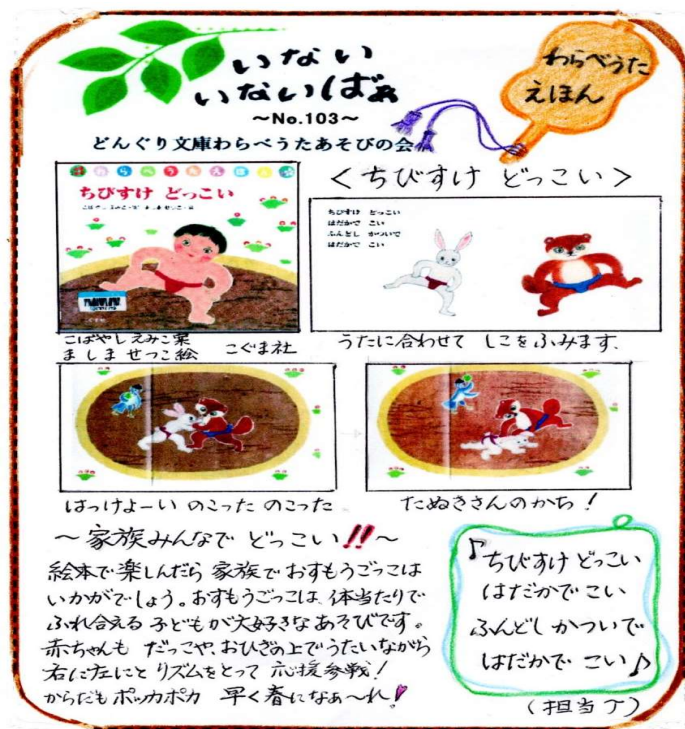 いない
いないばぁ
～No.103～
どんぐり文庫わらべうたあそびの会
わらべうた
えほん
わらべうたえほん
ちびすけ どっこい
＜ちびすけ どっこい＞
ちびすけ どっこい
はだかで こい
ふんどし かついで
はだかで こい
こばやしえみこ案
ましませつこ絵 こぐま社
うたに合わせて しこをふみます.
はっけよーい のこった のこった
たぬきさんのかち！
～家族みんなで どっこい!!～
絵本で楽しんだら 家族で おすもうごっこは
いかがでしょう。おすもうごっこは、体当たりで
ふれ合える 子どもが大好きな あそびです。
赤ちゃんも だっこや、おひざの上でうたいながら
右に左にと リズムをとって 応援参戦！
からだも ポッカポカ 早く春になぁ～れ！
♪ちびすけ どっこい
はだかで こい
ふんどし かついで
はだかで こい♪
(担当 T)